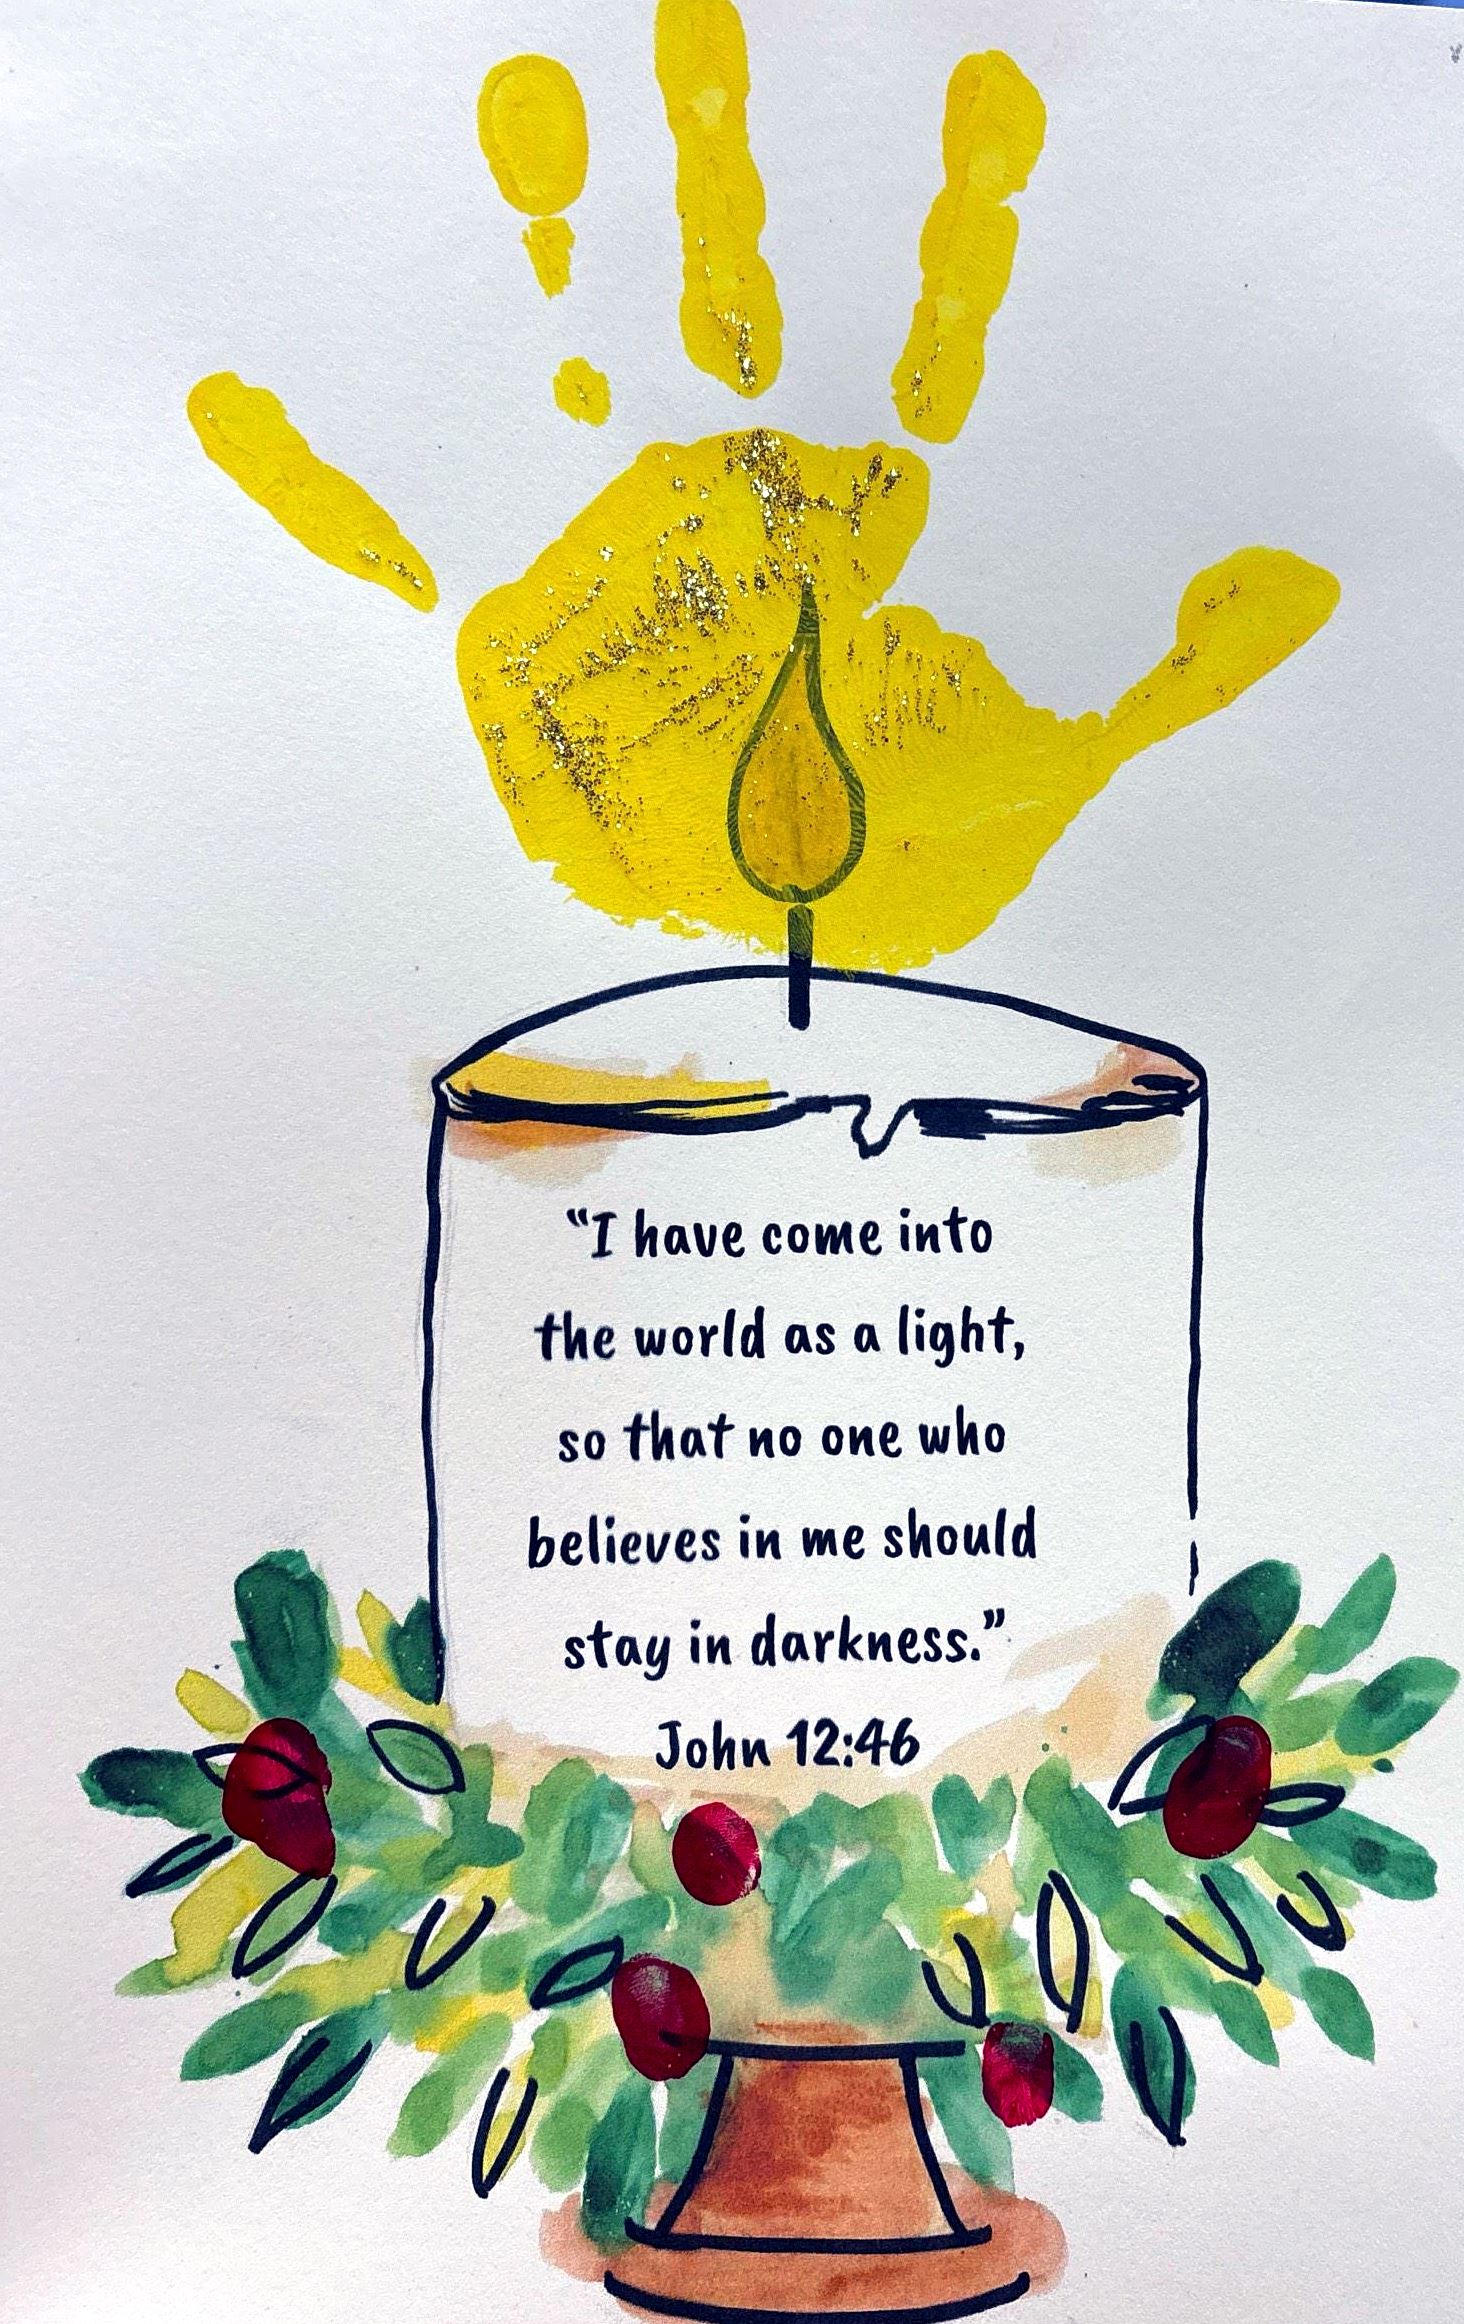 “I have come into
the world as a light,
so that no one who
believes in me should
stay in darkness.”
John 12:46